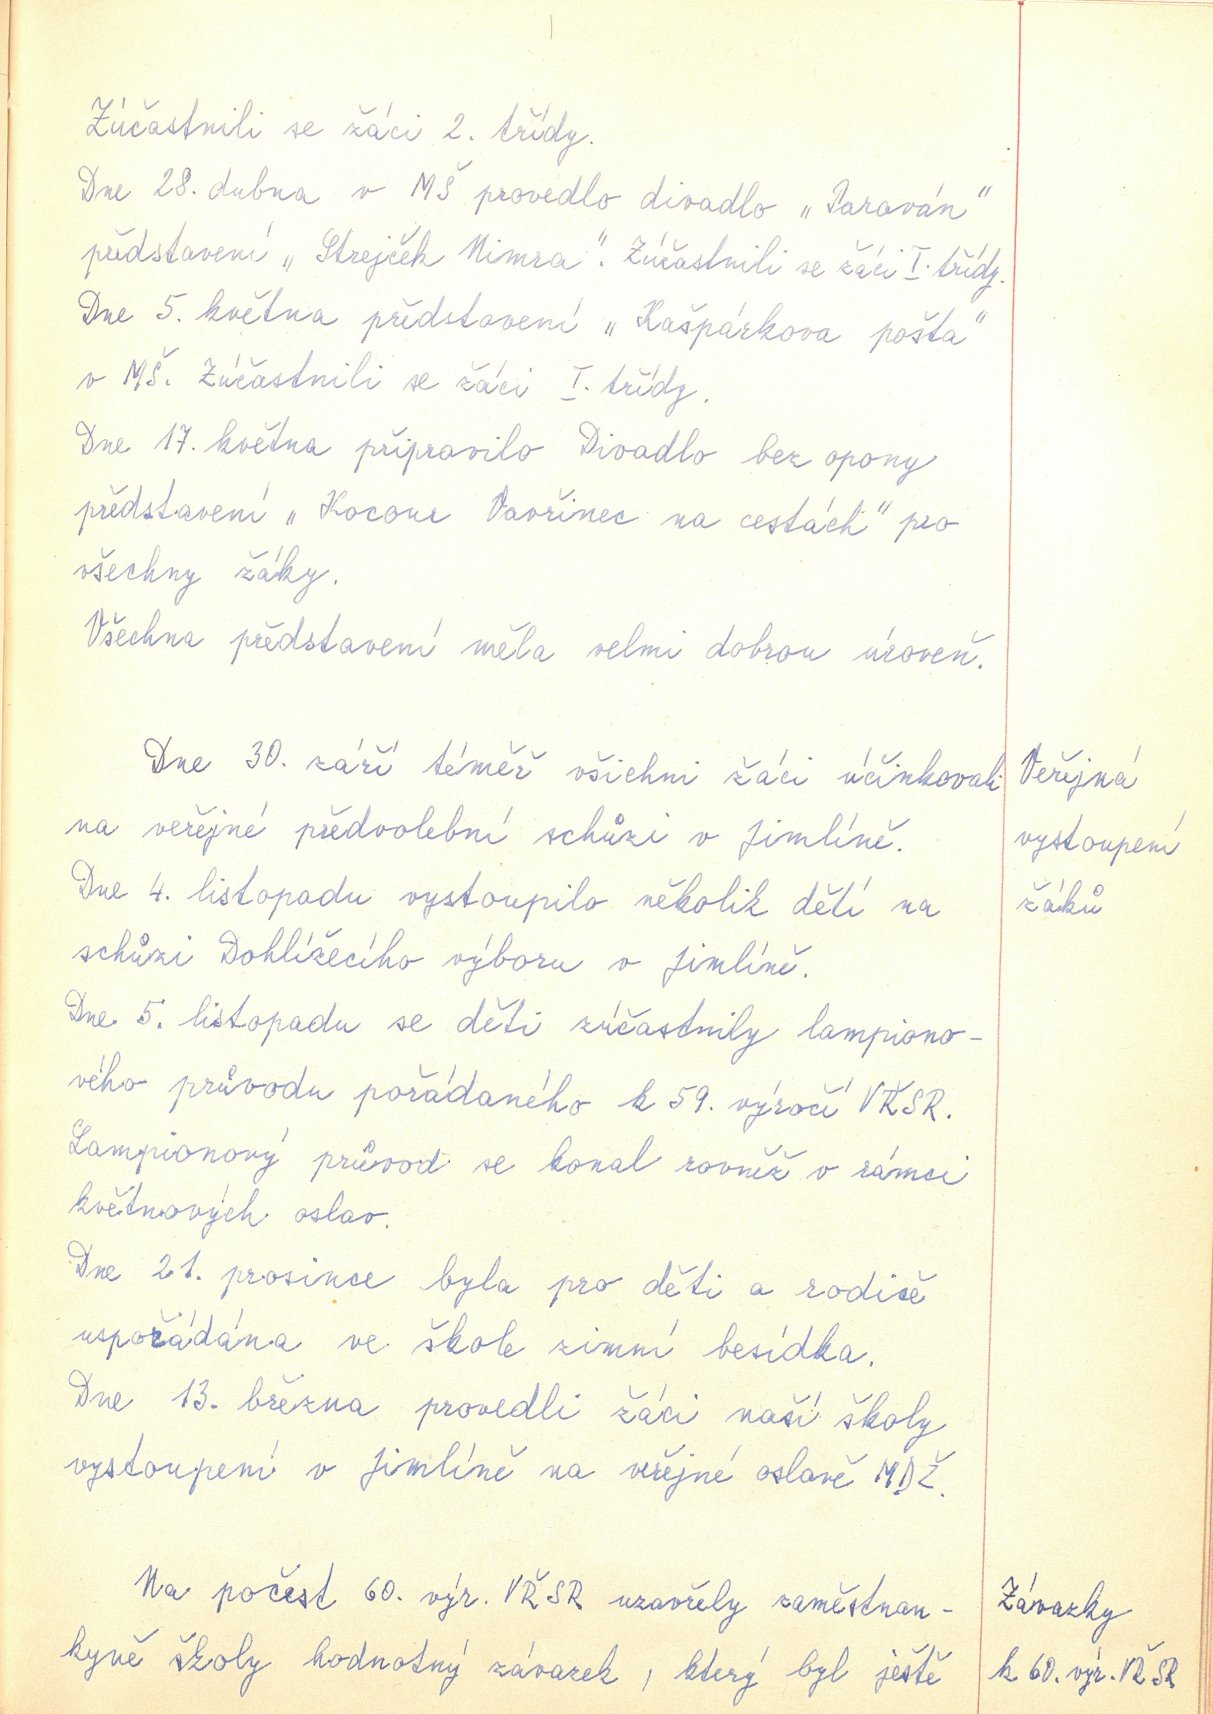 Zúčastnili se žáci 2. třídy.
Dne 28. dubna v MŠ provedlo divadlo „Paraván"
představení „Strejček Nimra". Zúčastnili se žáci I. třídy.
Dne 5. května představení „Kašpárkova pošta"
v MŠ. Zúčastnili se žáci I. třídy.
Dne 17. května připravilo Divadlo bez opony
představení „Kocour Vavřinec na cestách" pro
všechny žáky.
Všechna představení měla velmi dobrou úroveň.
Dne 30. září téměř všichni žáci účinkovali
na veřejné předvolební schůzi v Jimlíně.
Dne 4. listopadu vystoupilo několik dětí na
schůzi Dohlížecího výboru v Jimlíně.
Dne 5. listopadu se děti zúčastnily lampiono-
vého průvodu pořádaného k 59. výročí VŘSR.
Lampionový průvod se konal rovněž v rámci
květnových oslav.
Dne 21. prosince byla pro děti a rodiče
uspořádána ve škole zimní besídka.
Dne 13. března provedli žáci naší školy
vystoupení v Jimlíně na veřejné oslavě MDŽ.
Na počest 60. výr. VŘSR uzavřely zaměstnan-
kyně školy hodnotný závazek, který byl ještě
Veřejná
vystoupení
žáků
Závazky
k 60. výr. VŘSR